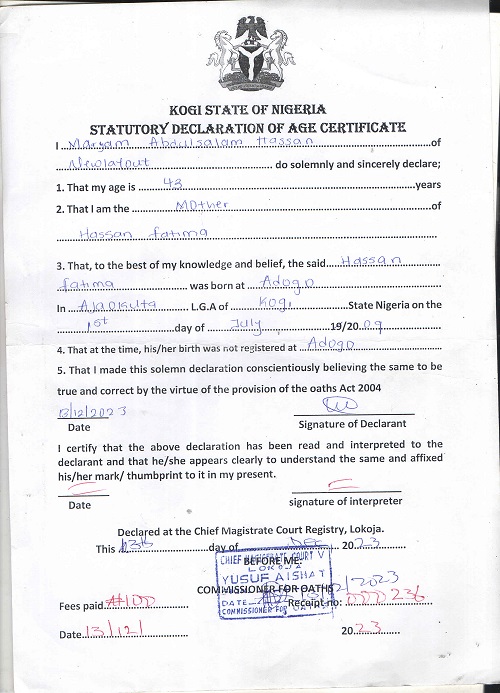 KOGI STATE OF NIGERIA
STATUTORY DECLARATION OF AGE CERTIFICATE
I ...Maryam Abdulsalam Hassan...of
Newlayout... do solemnly and sincerely declare;
1. That my age is ...43...years
2. That I am the ...Mother...of
Hassan fatima
3. That, to the best of my knowledge and belief, the said...Hassan
fatima...was born at ...Adogo
In ...Ajaokuta...L.G.A of ...Kogi...State Nigeria on the
1st...day of ...July...19/20..09
4. That at the time, his/her birth was not registered at ...Adogo
5. That I made this solemn declaration conscientiously believing the same to be
true and correct by the virtue of the provision of the oaths Act 2004
13/12/2023
Date
Signature of Declarant
I certify that the above declaration has been read and interpreted to the
declarant and that he/she appears clearly to understand the same and affixed
his/her mark/ thumbprint to it in my present.
Date
signature of interpreter
Declared at the Chief Magistrate Court Registry, Lokoja.
This 13th...day of...Dec...2023
CHIEF MAGISTRATE COURT V
BEFORE ME:
LOKOJA
YUSUF AISHAT
COMMISSIONER FOR OATHS
DATE
COMMISSIONER FOR OATHS
Fees paid...#100
Receipt no: 000236
Date...13/12/...2023